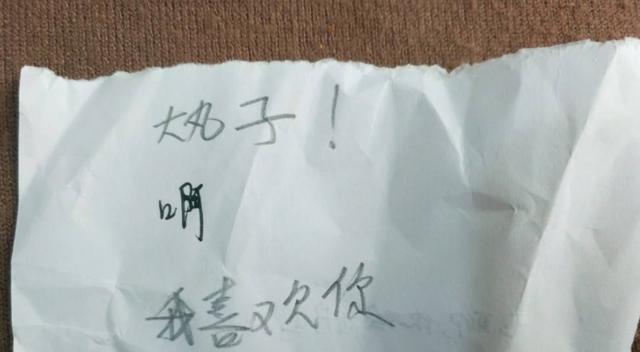 大丸子！
啊
我喜欢你